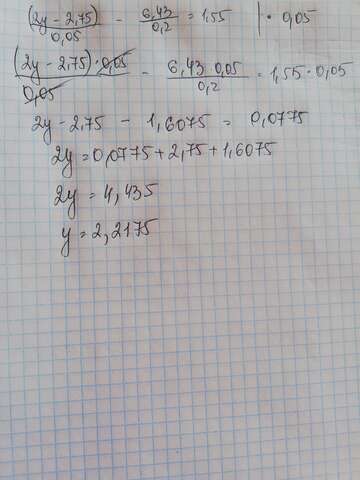 (2y - 2,75)/0,05 - 6,43/0,2 = 1,55 | · 0,05
(2y - 2,75) · 0,05/0,05 - 6,43 · 0,05/0,2 = 1,55 · 0,05
2y - 2,75 - 1,6075 = 0,0775
2y = 0,0775 + 2,75 + 1,6075
2y = 4,435
y = 2,2175